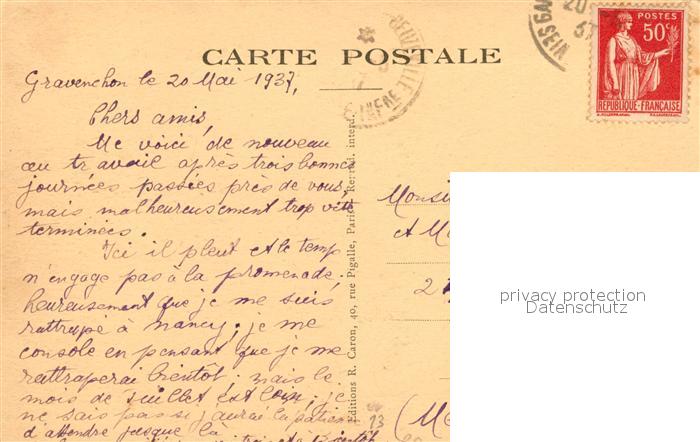 CARTE POSTALE
POSTES
50c
RÉPUBLIQUE-FRANÇAISE
Gravenchon le 20 Mai 1937,
Chers amis,
Me voici de nouveau
au travail après trois bonnes
journées passées près de vous,
mais malheureusement trop vite
terminées.
Ici il pleut et le temp
n'engage pas à la promenade,
heureusement que je me suis
rattrapé à Nancy; je me
console en pensant que je me
rattraperai bientôt; mais le
mois de Juillet est loin, je
ne sais pas si j'aurai la patience
d'attendre jusque là
Editions R. Caron, 40, rue Pigalle, Paris. Reprod. interd.
Monsi
et M
2
(M
13
privacy protection
Datenschutz